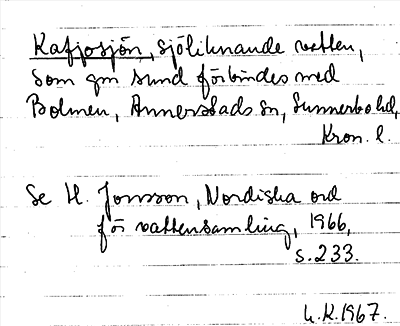 Kafjosjön, sjöliknande vatten,
som gm sund förbindes med
Bolmen, Annerstads sn, Sunnerbo hd,
Kron. l.
Se H. Jonsson, Nordiska ord
för vattensamling, 1966,
s. 233.
L.K. 1967.